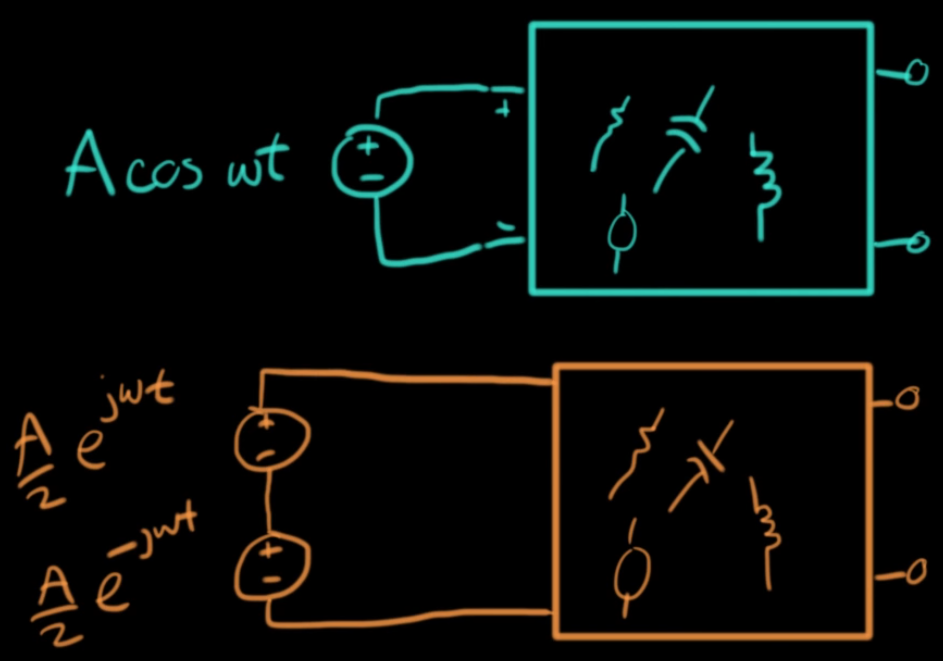 A cos ωt
+
-
+
-
A/2 e^jωt
+
-
A/2 e^-jωt
+
-